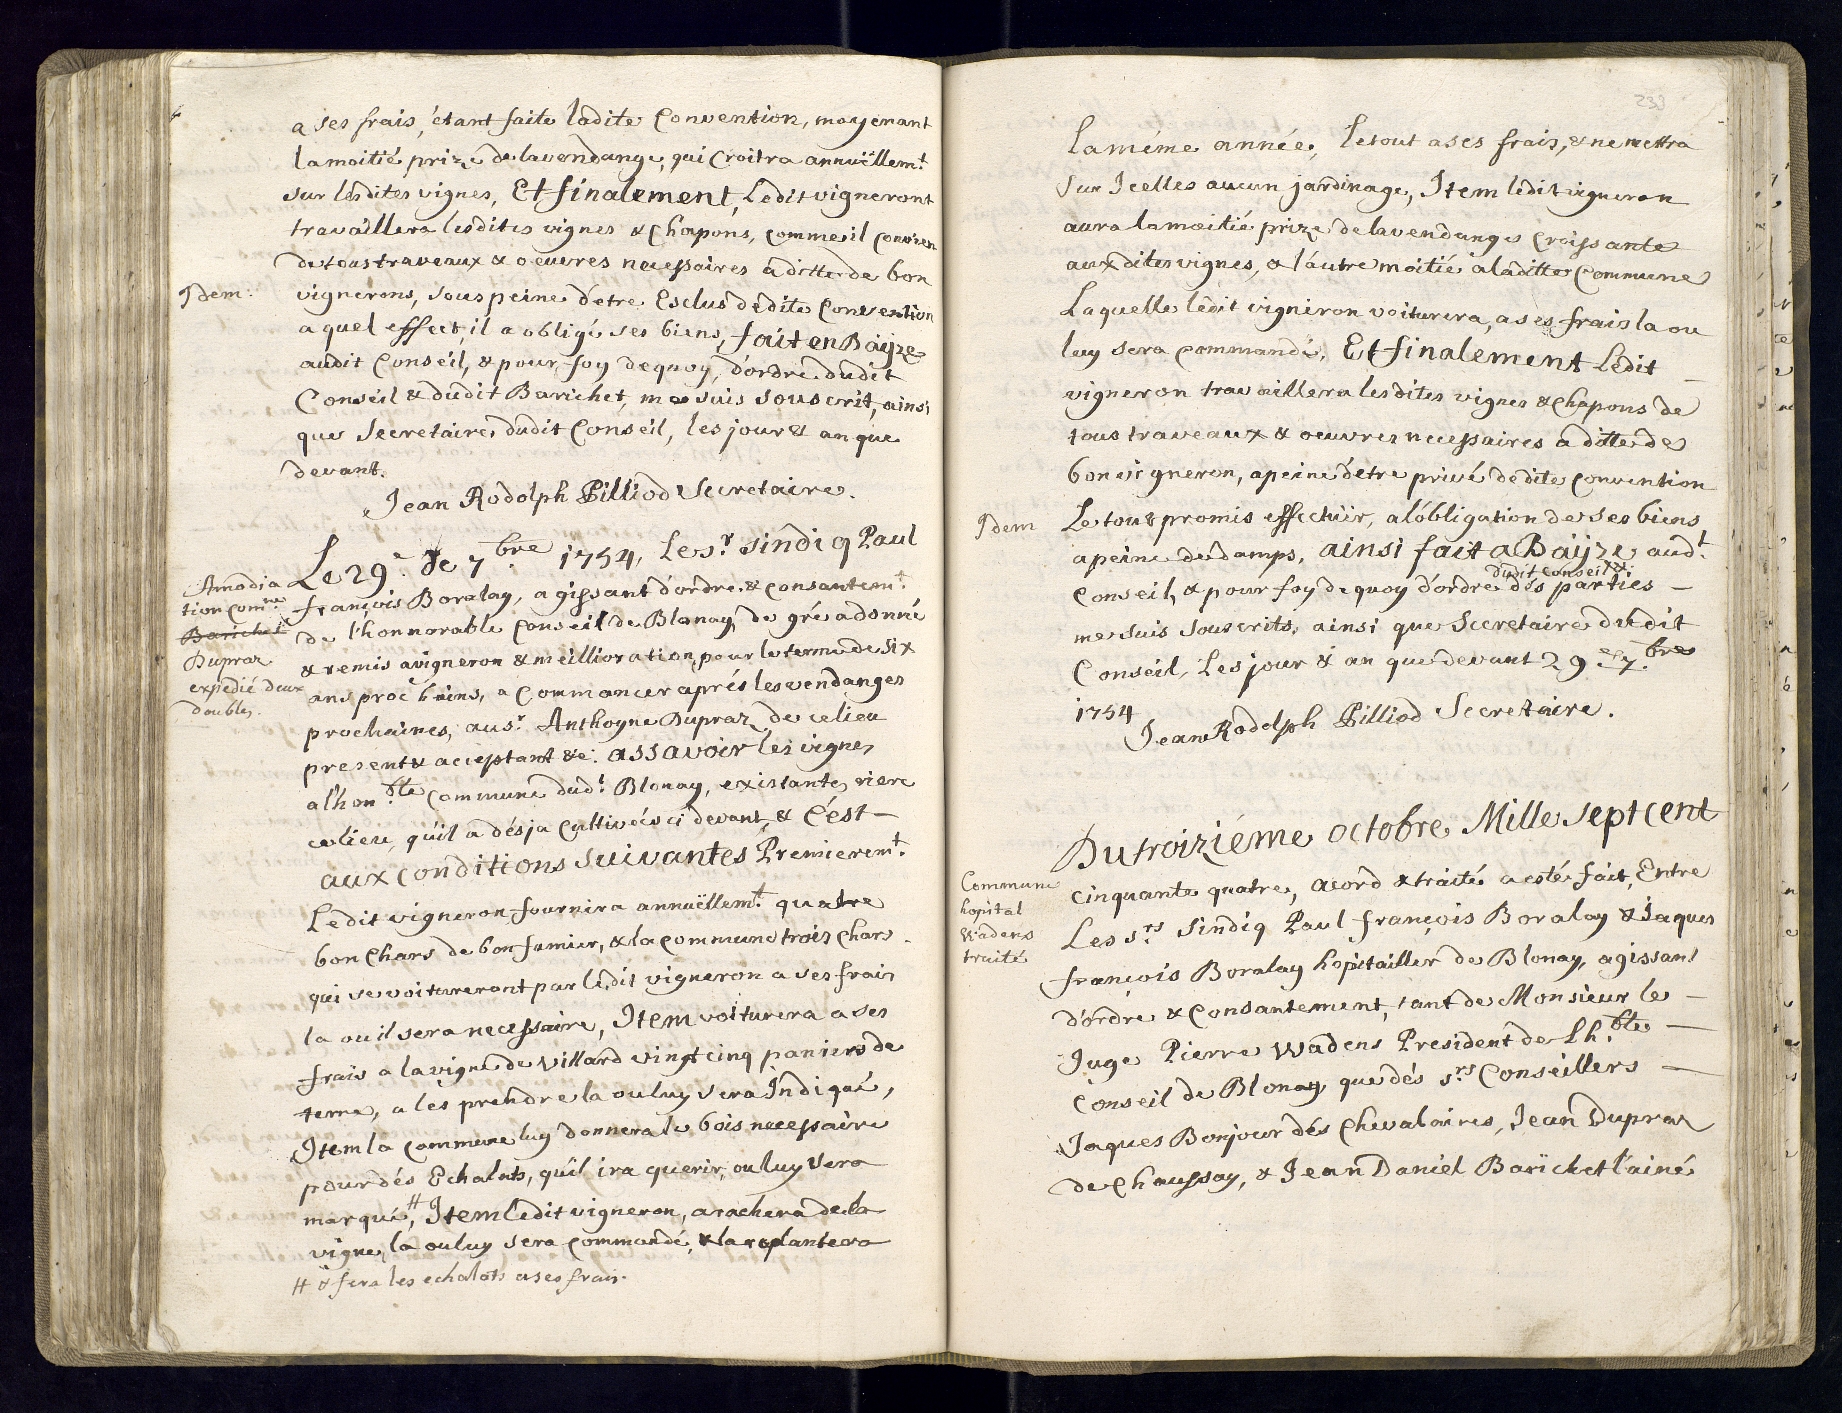 a ses frais, étant faite ladite Convention, moyenant
la moitié prize de la vendange, qui Croitra annuëllem.t
sur lésdites vignes, Et finalement, Ledit vigneront
travaillera lesdites vignes & Chapons, comme il convien
de tous traveaux & oeuvres necessaires a ditte de bon
Idem.
vignerons, sous peine d'etre Esclus de dite Convention
a quel effect, il a obligé ses biens, fait en Bäyze
audit Conseil, & pour foy de quoy, d'ordre dudit
Conseil & dudit Barichet, me suis souscrit, ainsi
que Secretaire dudit Conseil, les jour & an que
devant.
Jean Rodolph Pilliod Secretaire.
Le 29.e de 7.bre 1754, Le s.r sindiq Paul
Amodia
tion com.ne
Barichet
Dupraz
expedié deux
doubles.
françois Boralay, agissant d'ordre & consantem.t
de l'honnorable Conseil de Blonay, de gré a donné
& remis a vigneron & meillioration, pour le terme de six
ans proc~bains, a Commancer aprés les vendanges
prochaines, au s.r Anthoyne Dupraz de ce lieu
present & acceptant &c. assavoir les vignes
a l'hon.ble Commune dud.t Blonay, existantes riere
ce lieu, qu'il a désja Cultivées ci devant, & C'est —
aux conditions suivantes Premierem.t
Ledit vigneron fournira annuëllem.t quatre
bon Chars de bon fumier, & la Commune trois Chars
qui se voitureront par ledit vigneron a ses frais
la ou il sera necessaire, Item voiturera a ses
frais a la vigne de Villard vingt cinq paniers de
terre, a les prendre la ou luy sera Indiqué,
Item la Commune luy donnera le bois necessaire
pour dés Echalats, qu'il ira querir, ou luy sera
marqué, # Item Ledit vigneron, arachera de la
vigne, la ou luy sera Commandé, & la replantera
# & fera les echalats a ses frais.
La même année, Le tout a ses frais, & ne mettra
sur Icelles aucun jardinage, Item ledit vigneron
aura la moitié prize de la vendange Croissante
aux dites vignes, & l'autre moitié a laditte Commune
Laquelle ledit vigniron voiturera, a ses frais la ou
luy sera commandé. Et finalement Ledit —
vigneron travaillera lesdites vignes & Chapons de
tous traveaux & oeuvres necessaires a ditte de
bon vigneron, a peine d'etre privé de dite convention
Idem
Le tout promis effectüer, a l'óbligation de ses biens
a peine de damps, ainsi fait a Bäyze aud.t
Conseil, & pour foy de quoy d'ordre dudit Conseil & dés parties —
me suis souscrits, ainsi que Secretaire dudit
Conseil, Les jour & an que devant 29.e 7.bre
1754
Jean Rodolph Pilliod Secretaire.
Du troiziéme octobre Mille sept cent
Commune
hopital
Wadens
traité
cinquante quatre, acord & traité a esté fait, Entre
Les s.rs Sindiq Paul françois Boralay & Jaques
françois Boralay hopitailler de Blonay, agissant
d'ordre & Consantement, tant de Monsieur le —
Juge Pierre Wadens President de Lh.ble —
Conseil de Blonay que dés s.rs Conseillers —
Jaques Bonjour dés Chevalaires, Jean Dupraz
de Chaussay, & Jean Daniel Barichet l'ainé